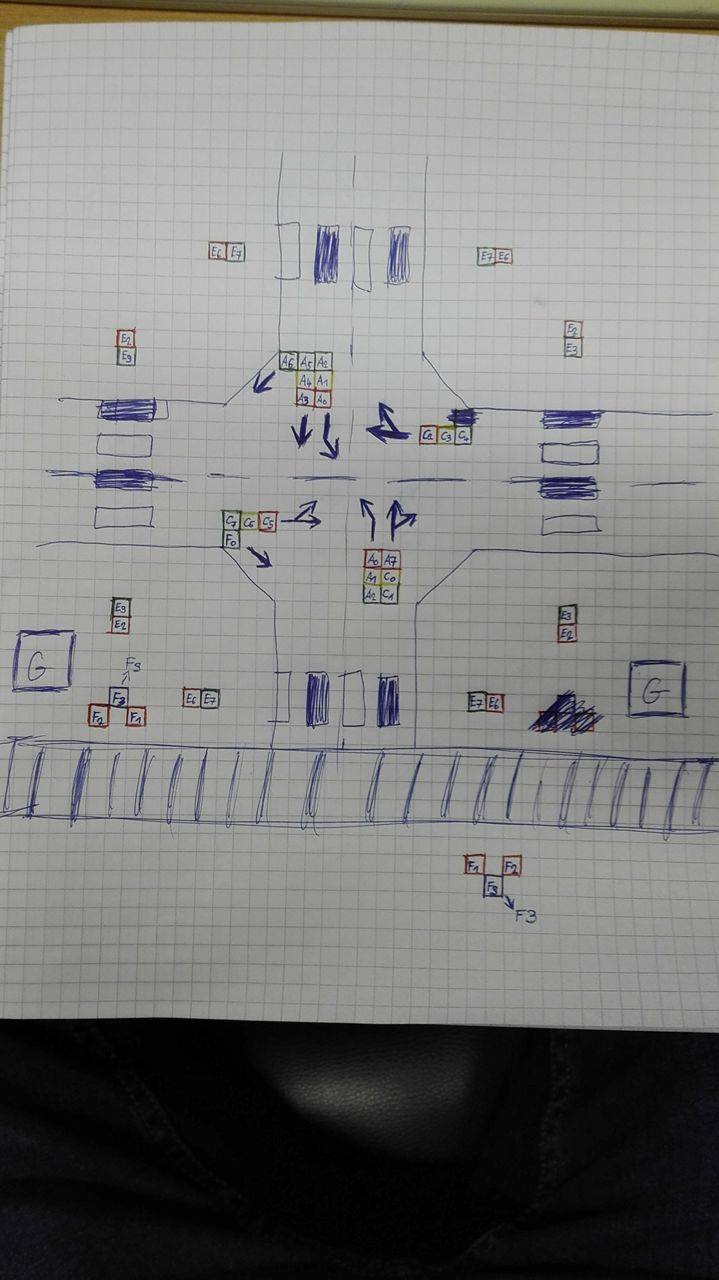 E6 E7
E7 E6
E2
E3
E2
E3
A6 A5 A2
A4 A1
A3 A0
C2 C3 C4
C7 C6 C5
F0
A0 A7
A1 C0
A2 C1
E3
E2
E3
E2
G
F3
F3
F2 F1
E6 E7
E7 E6
G
F1 F2
F3
F3